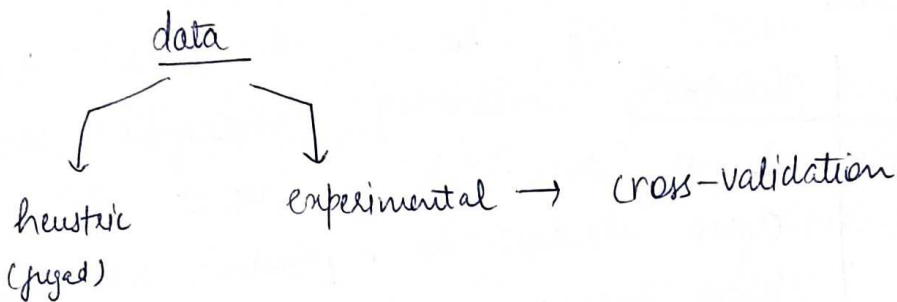 data
heustric
(jugad)
experimental → cross-validation